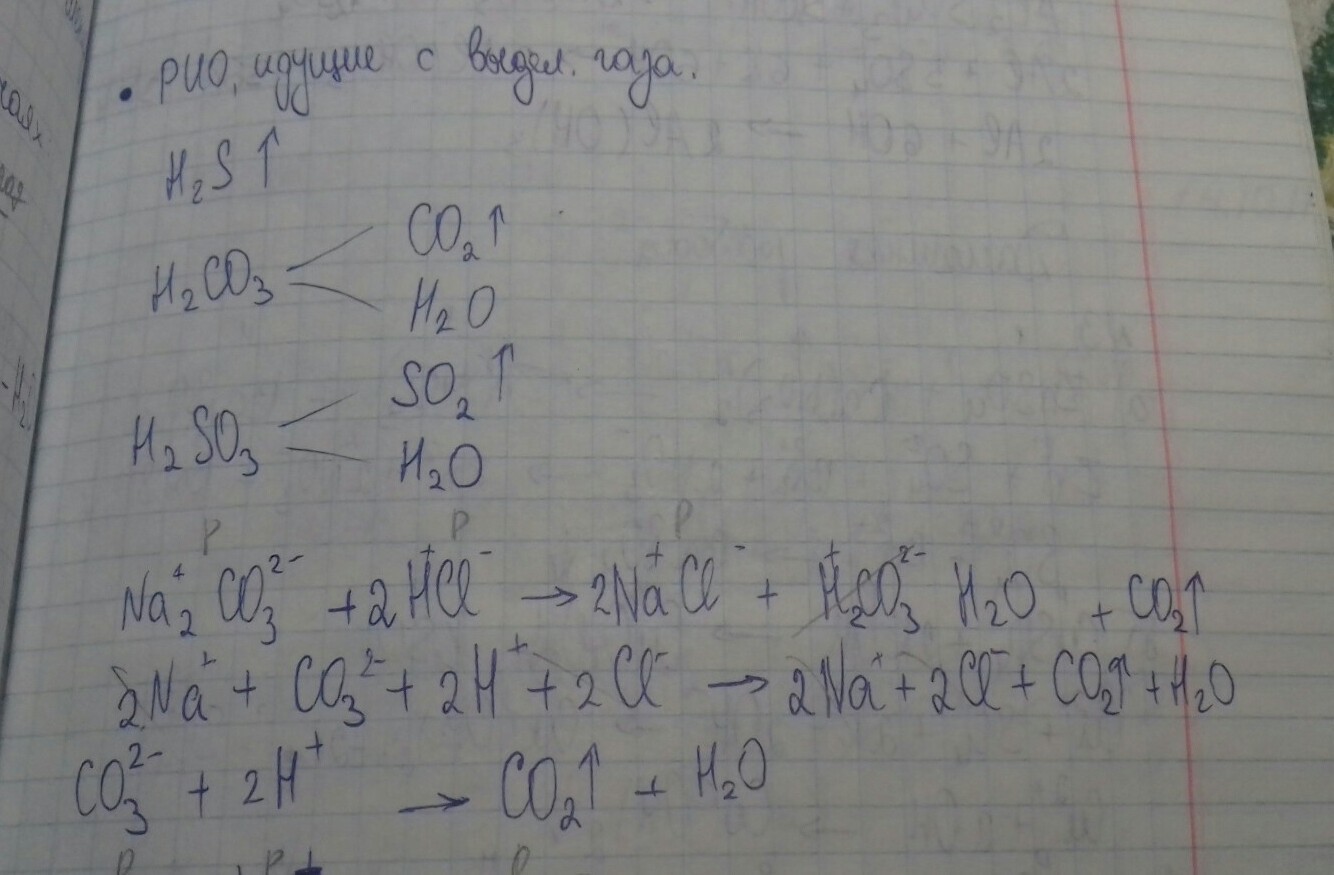 • РИО, идущие с выдел. газа.
H₂S ↑
CO₂↑
H₂CO₃
H₂O
SO₂ ↑
H₂SO₃
H₂O
р р р
Na₂⁺ CO₃²⁻ + 2 H⁺Cl⁻ → 2Na⁺Cl⁻ + H₂⁺CO₃²⁻ H₂O + CO₂↑
2Na⁺ + CO₃²⁻ + 2H⁺ + 2Cl⁻ → 2Na⁺ + 2Cl⁻ + CO₂↑ + H₂O
CO₃²⁻ + 2H⁺ → CO₂↑ + H₂O